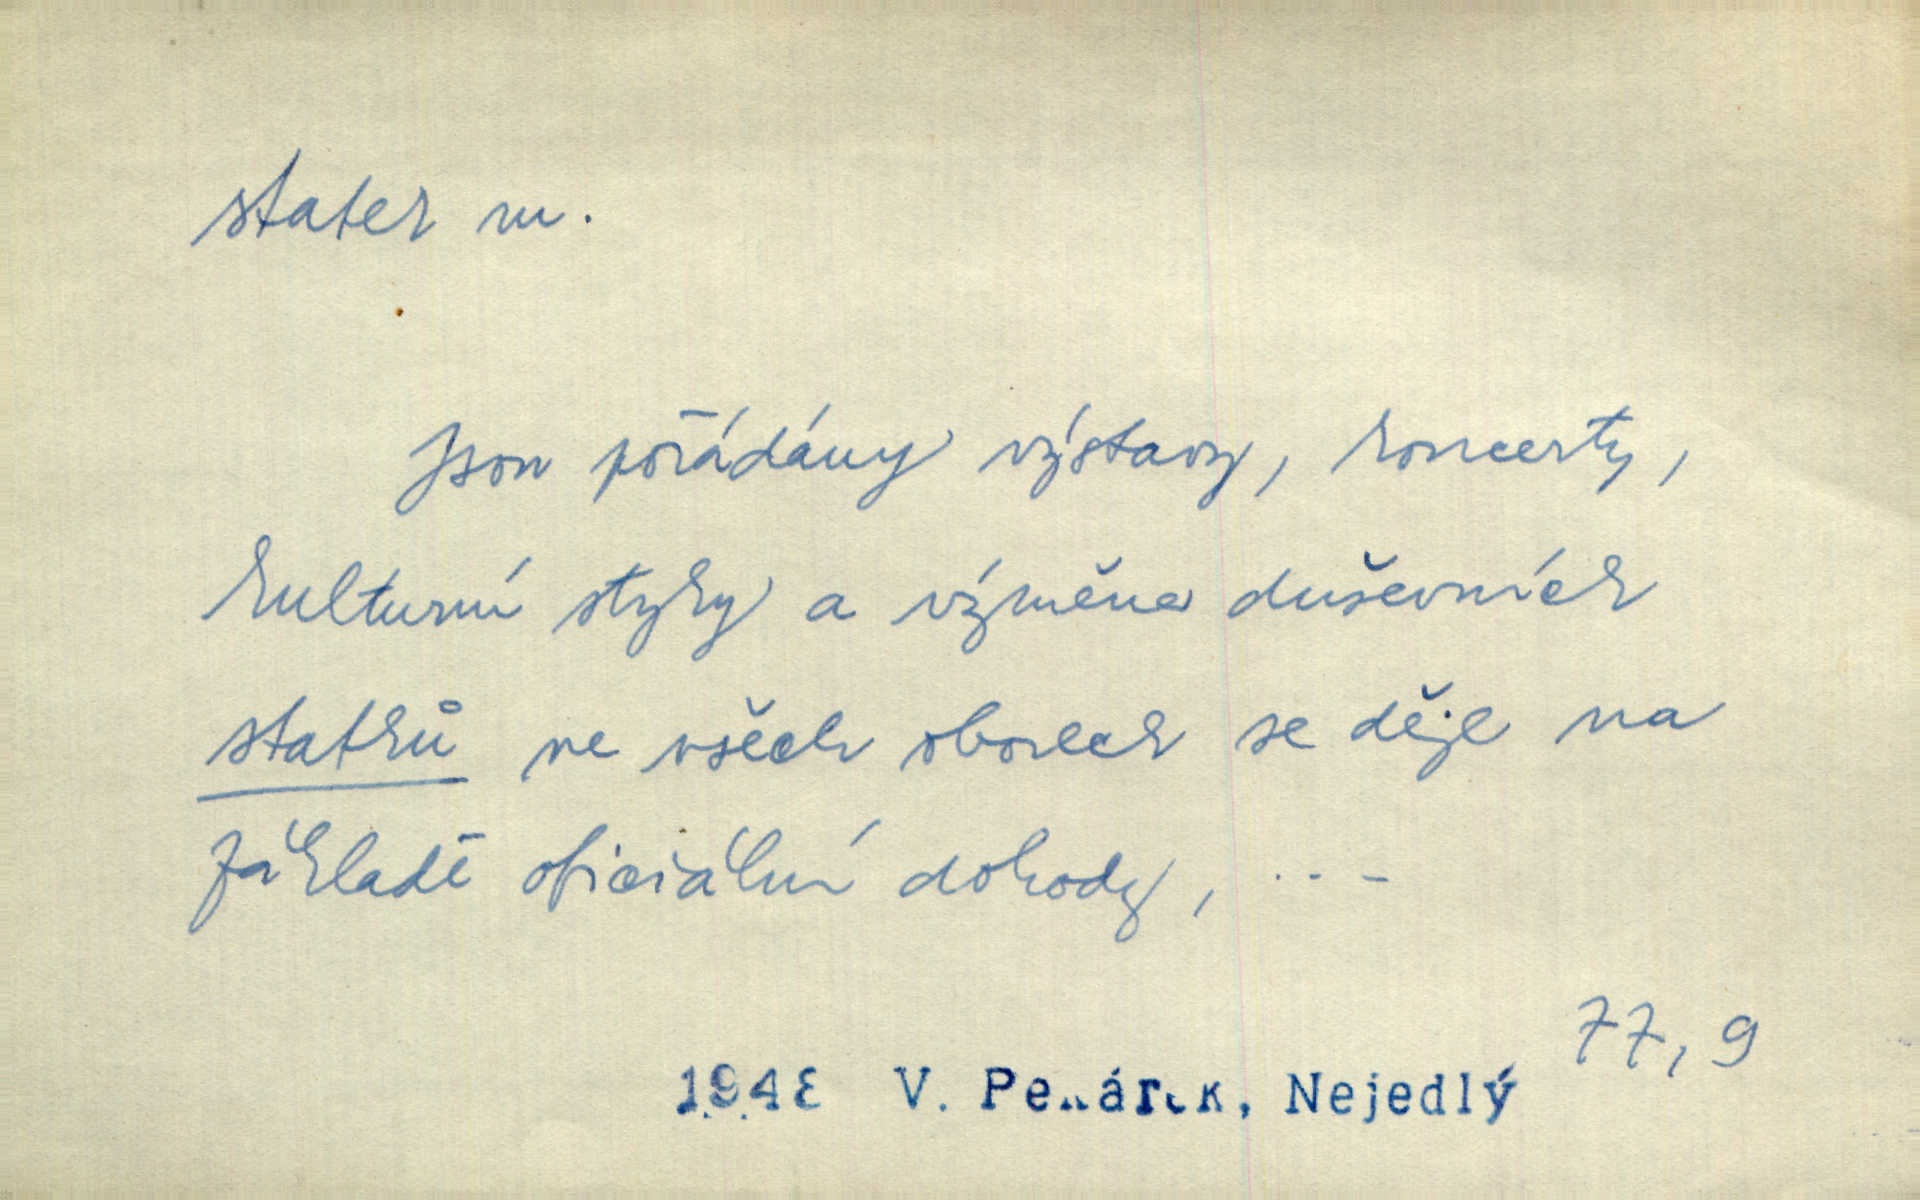 statek m.
Jsou pořádány výstavy, koncerty,
kulturní styky a výměna duševních
statků ve všech oborech se děje na
základě oficiální dohody, ...-
77, 9
1948 V. Pekárek, Nejedlý